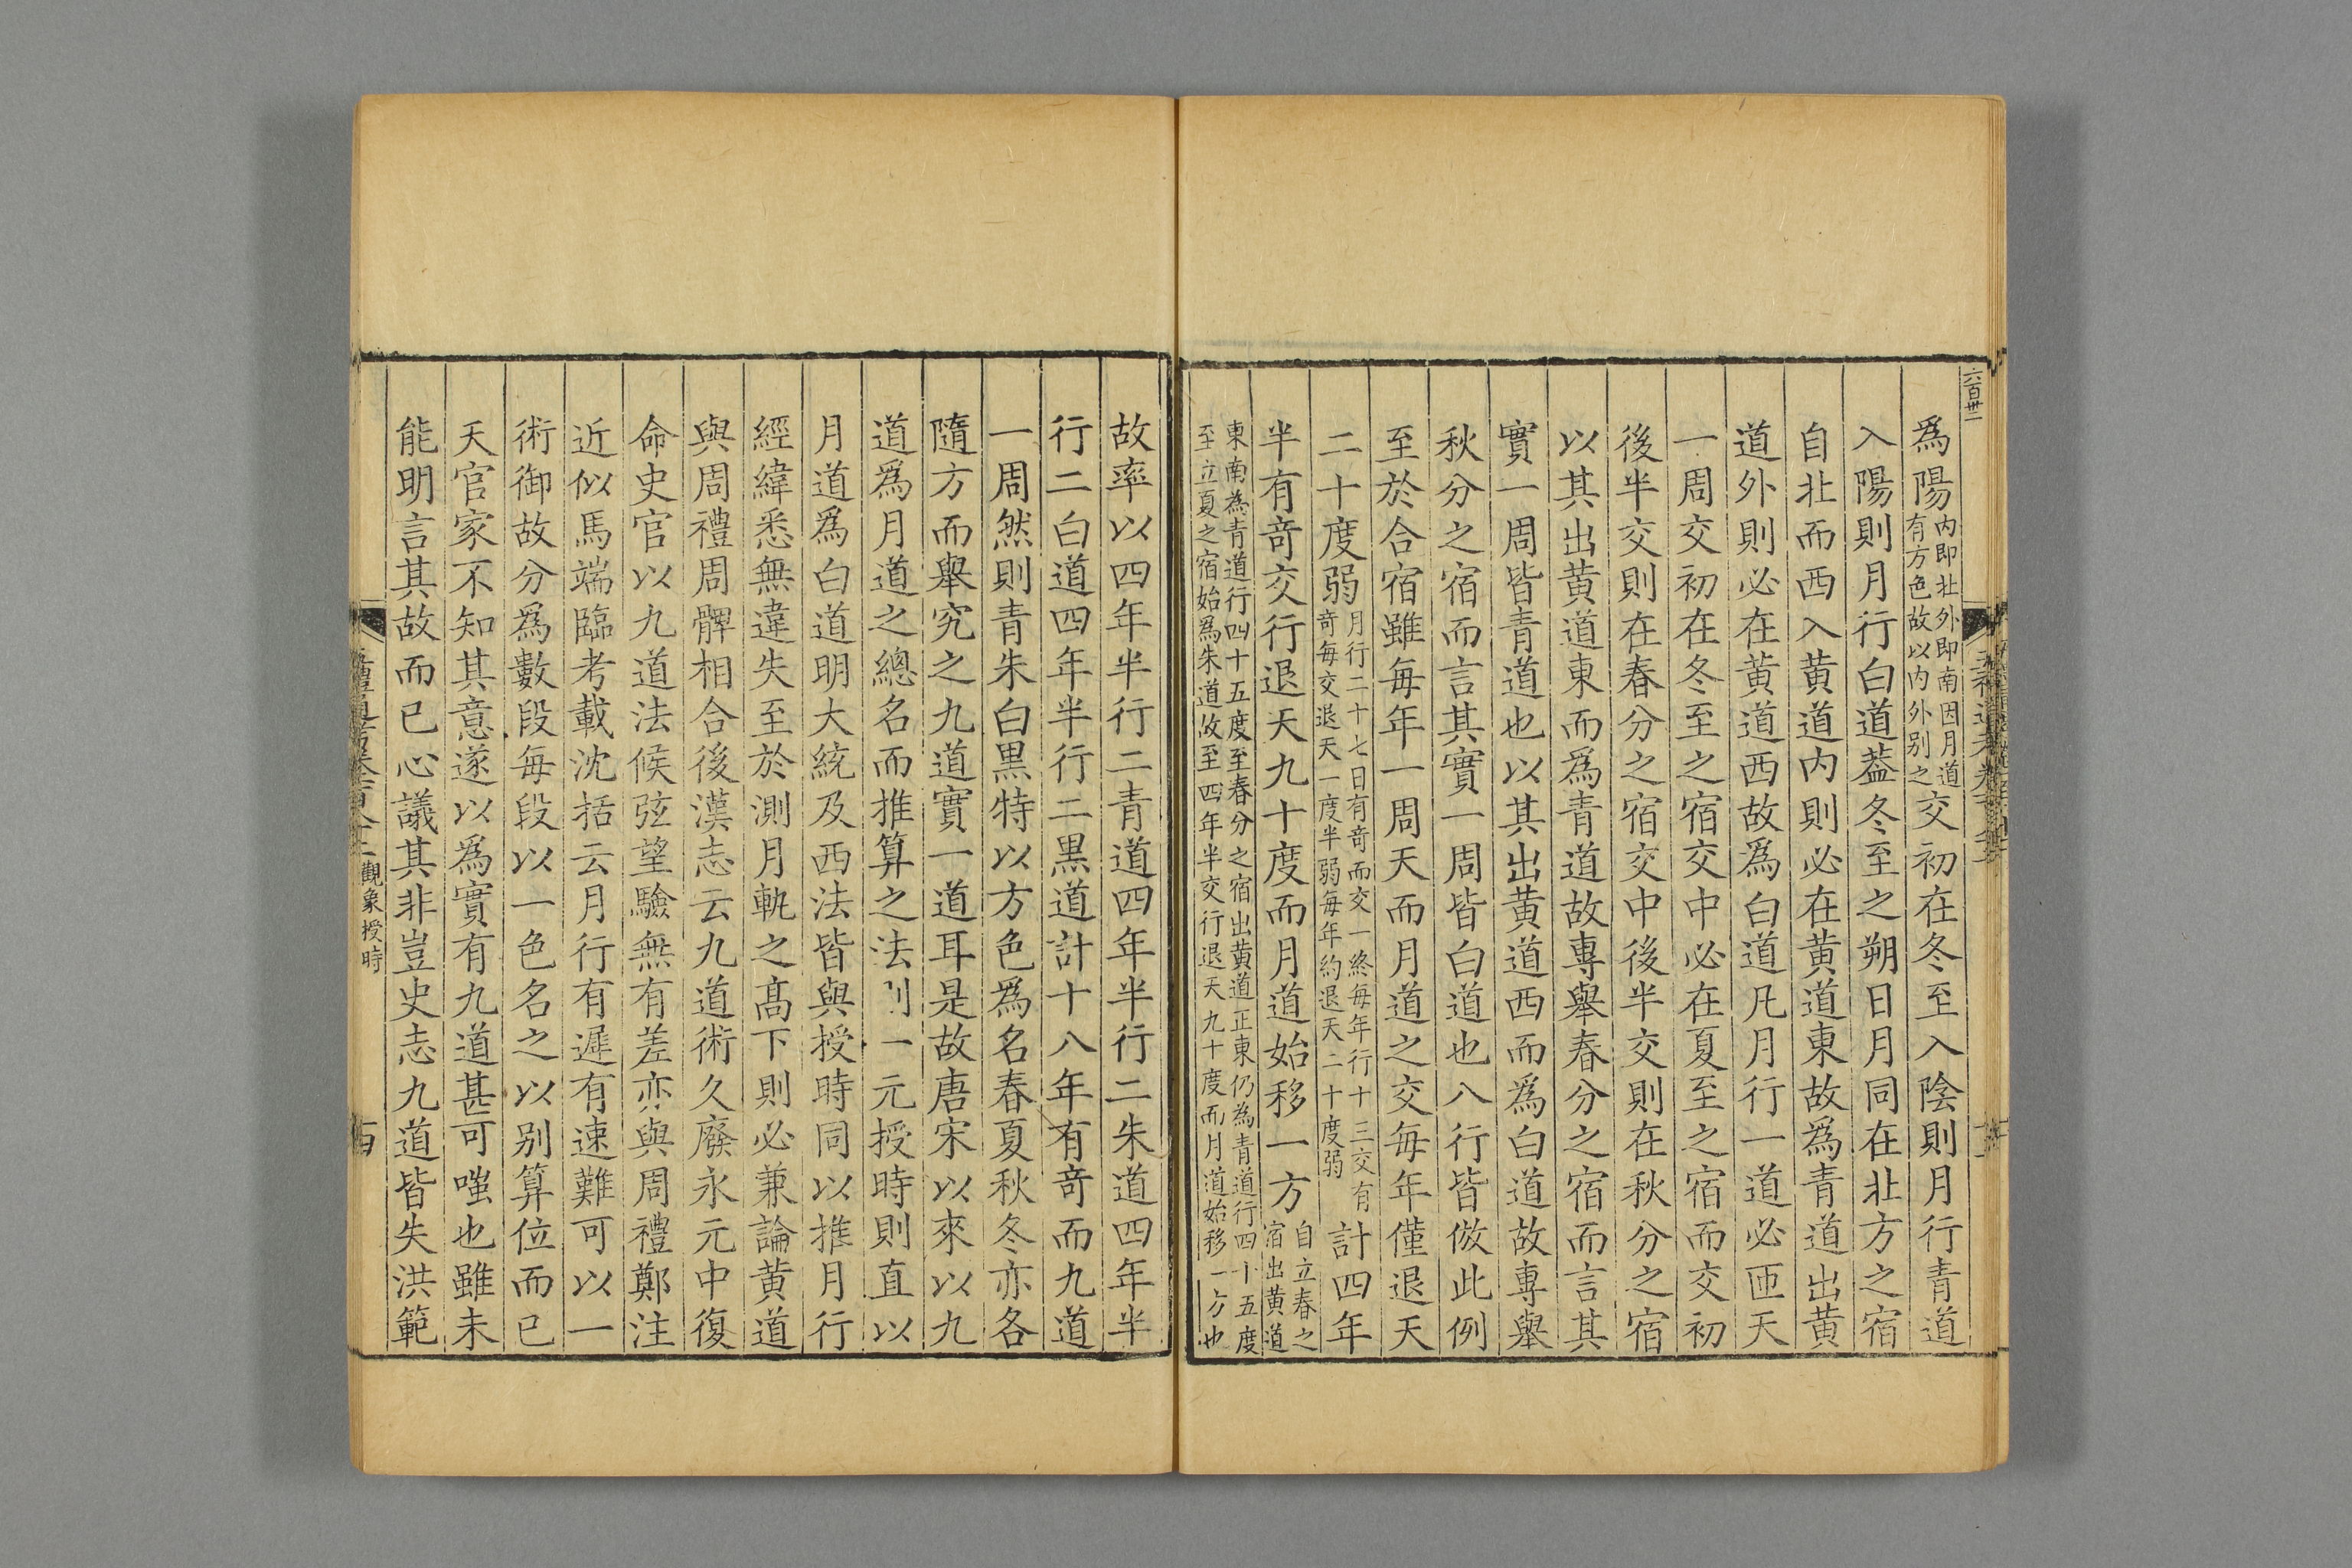 六百卅二
爲陽内即北外即南因月道有方色故以内外别之交初在冬至入陰則月行青道
入陽則月行白道葢冬至之朔日月同在北方之宿
自北而西入黄道内則必在黄道東故爲青道出黄
道外則必在黄道西故爲白道凡月行一道必匝天
一周交初在冬至之宿交中必在夏至之宿而交初
後半交則在春分之宿交中後半交則在秋分之宿
以其出黄道東而爲青道故專舉春分之宿而言其
實一周皆青道也以其出黄道西而爲白道故專舉
秋分之宿而言其實一周皆白道也八行皆倣此例
至於合宿雖每年一周天而月道之交每年僅退天
二十度弱月行二十七日有奇而交一終每年行十三交有奇每交退天一度半弱每年約退天二十度弱計四年
半有奇交行退天九十度而月道始移一方自立春之宿出黄道
東南為青道行四十五度至春分之宿出黄道正東仍為青道行四十五度至立夏之宿始爲朱道故至四年半交行退天九十度而月道始移一方也
故率以四年半行二青道四年半行二朱道四年半
行二白道四年半行二黒道計十八年有奇而九道
一周然則青朱白黒特以方色爲名春夏秋冬亦各
隨方而舉究之九道實一道耳是故唐宋以來以九
道爲月道之總名而推算之法則一元授時則直以
月道爲白道明大統及西法皆與授時同以推月行
經緯悉無違失至於測月軌之髙下則必兼論黄道
與周禮周髀相合後漢志云九道術久廢永元中復
命史官以九道法候弦望驗無有差亦與周禮鄭注
近似馬端臨考載沈括云月行有遲有速難可以一
術御故分爲數段每段以一色名之以别算位而已
天官家不知其意遂以爲實有九道甚可嗤也雖未
能明言其故而已心議其非豈史志九道皆失洪範
觀象授時